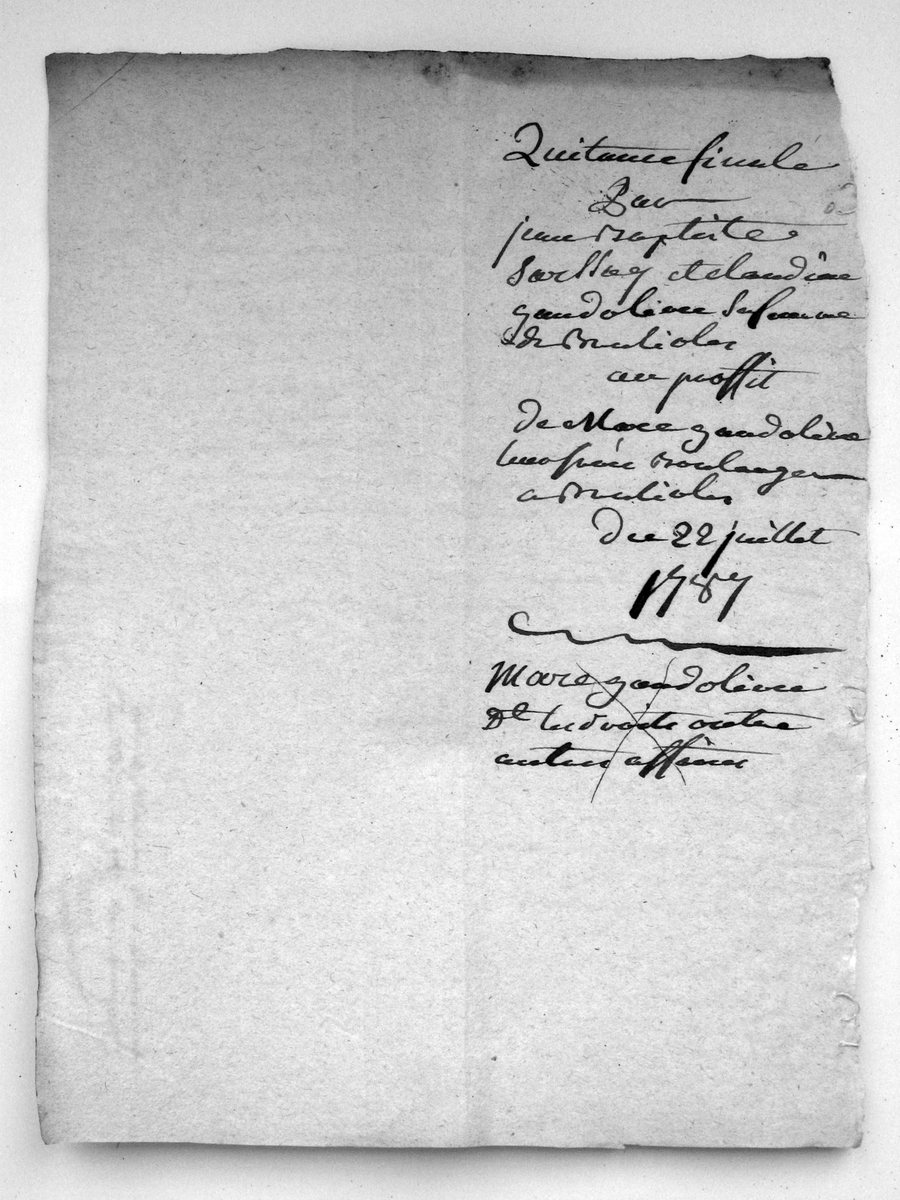 Quitance finale
Par
jean Baptiste
et claudine
gandoliere sa femme
de Brulioles
au proffit
de Marc gandoliere
leur frere Boulanger
a Brulioles
Du 22 juillet
1787
Marc gandoliere
Dt les droits outre
autres affires